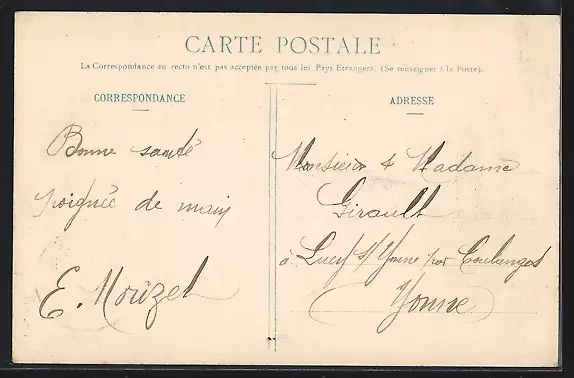 CARTE POSTALE
La Correspondance au recto n'est pas acceptée par tous les Pays Etrangers. (Se renseigner à la Poste).
CORRESPONDANCE
ADRESSE
Bonne santé
poignée de main
E. Mouzet
Monsieur & Madame
Girault
à Lucy s/ Yonne par Coulanges
Yonne